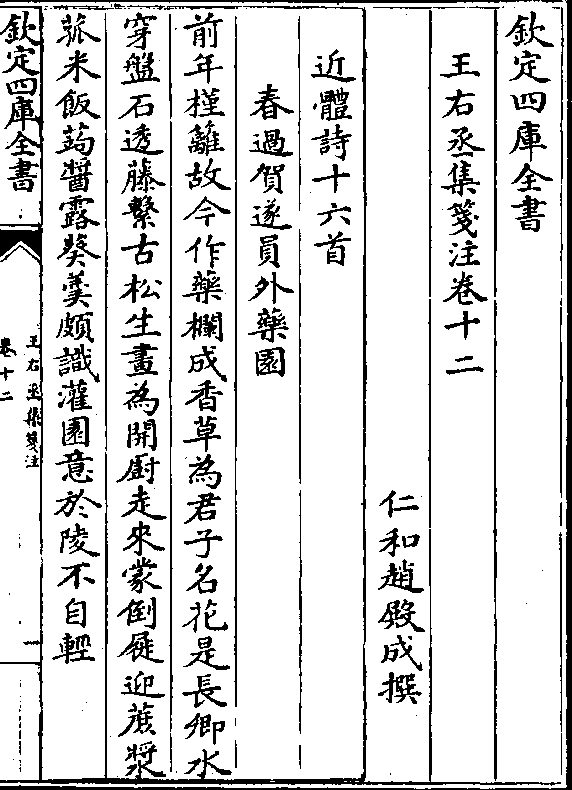 欽定四庫全書
王右丞集箋注卷十二
仁和趙殿成撰
近體詩十六首
春過賀遂員外藥園
前年槿籬故今作藥欄成香草為君子名花是長卿水
穿盤石透藤繫古松生畫為開厨走來蒙倒屣迎蔗漿
菰米飯蒟醬露葵羹頗識灌園意於陵不自輕
欽定四庫全書
王右丞集箋注
卷十二
一